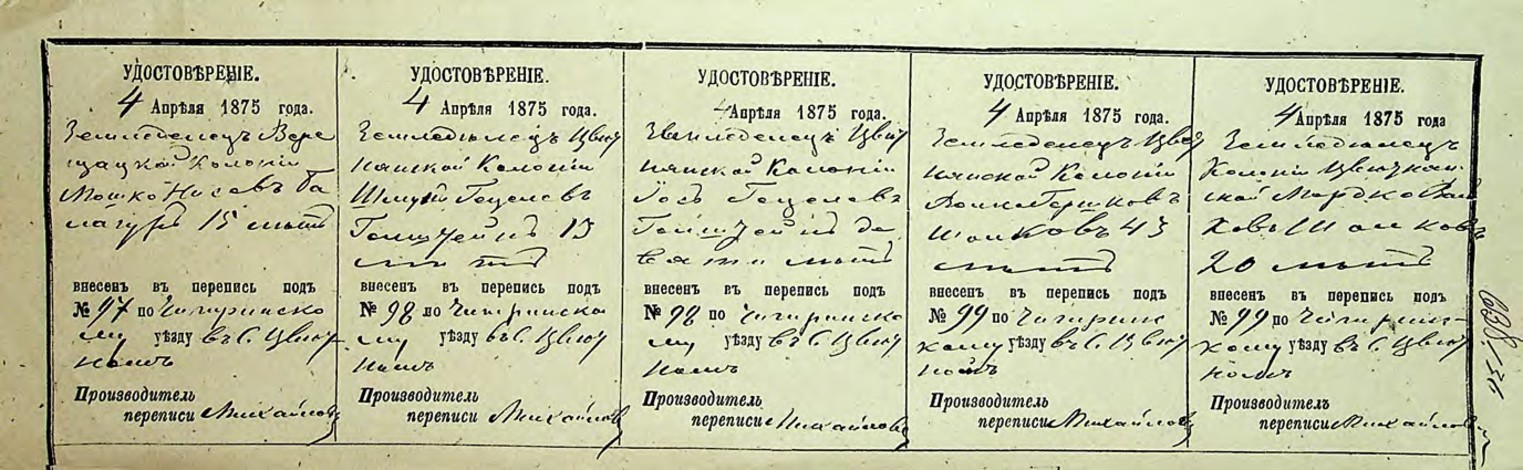 УДОСТОВѢРЕНІЕ.
4 Апрѣля 1875 года.
Земледелецъ Вере
щацкой Колоніи
Мошко Нисевъ Ба
лагуръ 15 лѣтъ
внесенъ въ перепись подъ
№ 97 по Чигиринско
му уѣзду въ С. Цвѣт
номъ
Производитель
переписи Михайловъ
УДОСТОВѢРЕНІЕ.
4 Апрѣля 1875 года.
Земледѣлецъ Цвѣт
нянской Колоніи
Шмуль Гецелевъ
13
лѣтъ
внесенъ въ перепись подъ
№ 98 по Чигиринско
му уѣзду въ С. Цвѣт
номъ
Производитель
переписи Михайловъ
УДОСТОВѢРЕНІЕ.
4 Апрѣля 1875 года.
Земледелецъ Цвѣт
нянской Колоніи
Гецелевъ
де
вяти лѣтъ
внесенъ въ перепись подъ
№ 98 по Чигиринско
му уѣзду въ С. Цвѣт
номъ
Производитель
переписи Михайловъ
УДОСТОВѢРЕНІЕ.
4 Апрѣля 1875 года.
Земледелецъ Цвѣт
нянской Колоніи
Гершковъ
43
лѣтъ
внесенъ въ перепись подъ
№ 99 по Чигирин
кому уѣзду въ С. Цвѣт
номъ
Производитель
переписи Михайловъ
УДОСТОВѢРЕНІЕ.
4 Апрѣля 1875 года
Земледѣлецъ
Колоніи
ской Мордко
20 лѣтъ
внесенъ въ перепись подъ
№ 99 по Чигирин
кому уѣзду въ С. Цвѣт
номъ
Производитель
переписи Михайловъ